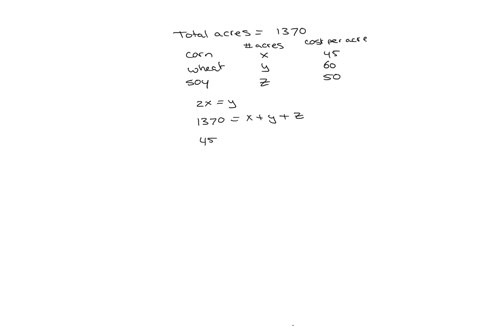 Total acres = 1370
# acres cost per acre
corn x 45
wheat y 60
soy z 50
2x = y
1370 = x + y + z
45